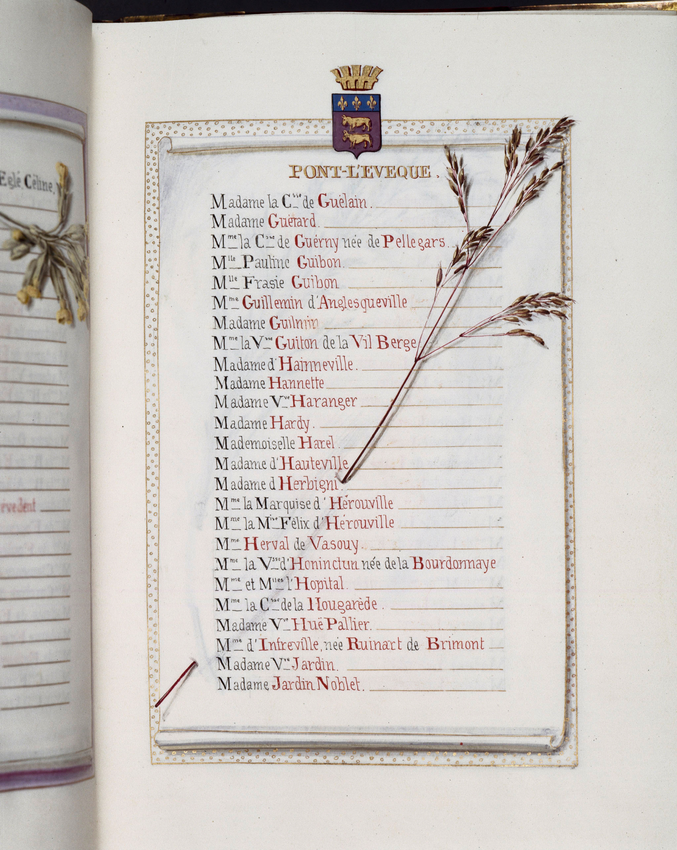 Eglé Céline,
rvedent
PONT-L'EVEQUE.
Madame la Ctsse de Guélain.
Madame Guérard.
Mme la Ctsse de Guerny née de Pellegars.
Mlle Pauline Guibon.
Mlle Frasie Guibon.
Mme Guillemin d'Anglesqueville
Madame
Mme la Vsse Guiton de la Vil Berge
Madame d'Hainneville.
Madame Hannette
Madame Vve Haranger
Madame Hardy.
Mademoiselle Harel
Madame d'Hauteville
Madame d'Herbigni
Mme la Marquise d'Hérouville
Mme la Mise Félix d'Hérouville
Mme Herval de Vasouy.
Mme la Vsse d'Honinctun née de la Bourdonnaye
Mme et Mlles l'Hopital.
Mme la Ctsse de la Hougarède.
Madame Vve Hue Pallier.
Mme d'Infreville, née Ruinart de Brimont
Madame Vve Jardin.
Madame Jardin Noblet.